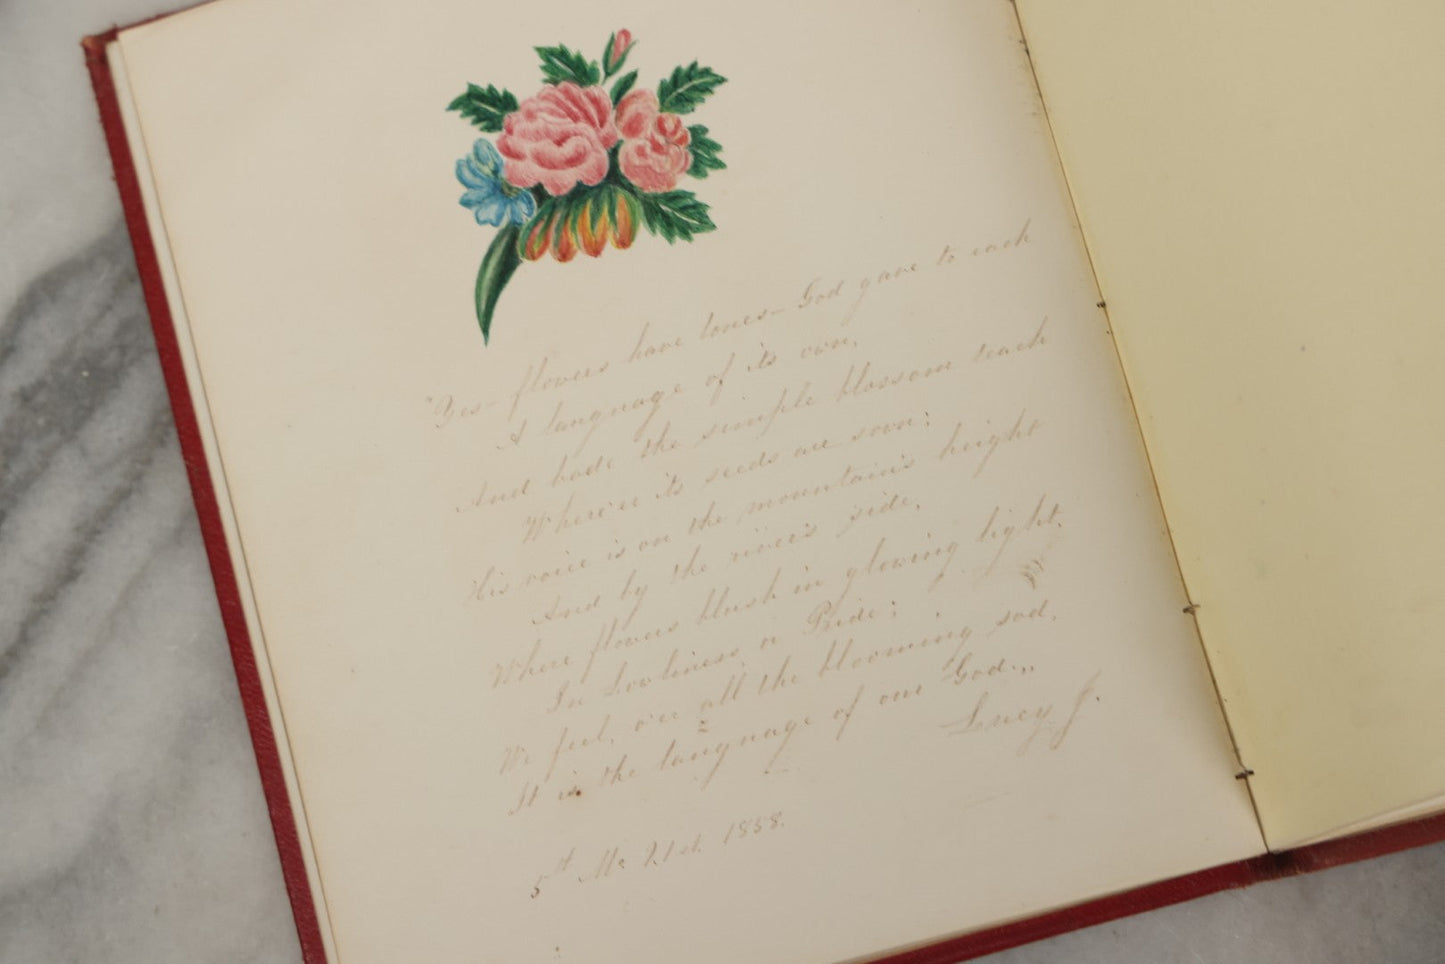 "Yes – flowers have tones – God gave to each
A language of its own,
And bade the simple blossom teach
Where'er its seeds are sown;
His voice is on the mountain's height
And by the river's side,
Where flowers blush in glowing light,
In Lowliness, or Pride;
We feel, o'er all the blooming sod,
It is the language of our God."
Lucy J.
5th Mo 21st. 1858.